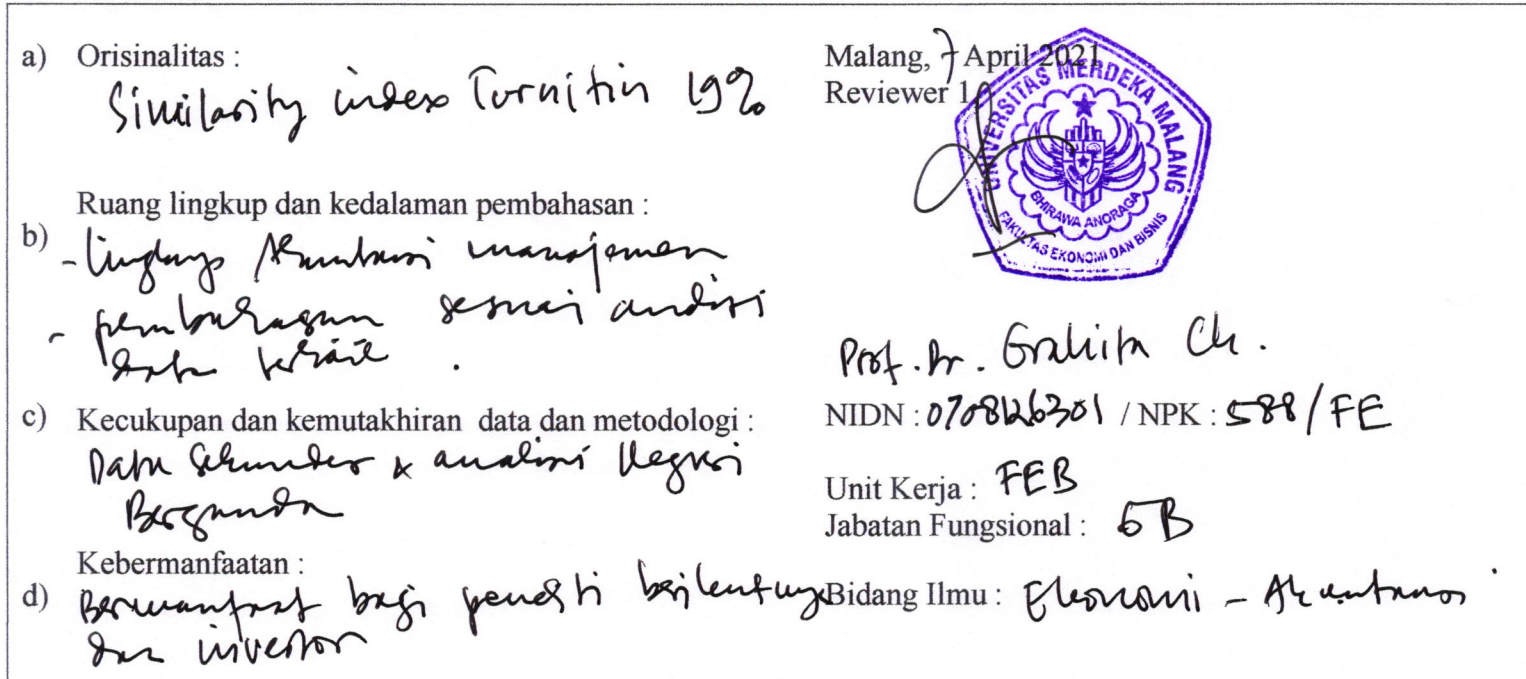 a) Orisinalitas :
Similarity index Turnitin 19%
b) Ruang lingkup dan kedalaman pembahasan :
- lingkup Akuntansi manajemen
- pembahasan sesuai analisi
data terkait .
c) Kecukupan dan kemutakhiran data dan metodologi :
Data Sekunder & analisi Regresi
Berganda
d) Kebermanfaatan :
Bermanfaat bagi peneliti berikutnya
dan investor
Malang, 7 April 2021
Reviewer 1
UNIVERSITAS MERDEKA MALANG
BHIRAWA ANORAGA
FAKULTAS EKONOMI DAN BISNIS
Prof. Dr. Grahita Ch.
NIDN : 0708126301 / NPK : 588/FE
Unit Kerja : FEB
Jabatan Fungsional : GB
Bidang Ilmu : Ekonomi - Akuntansi